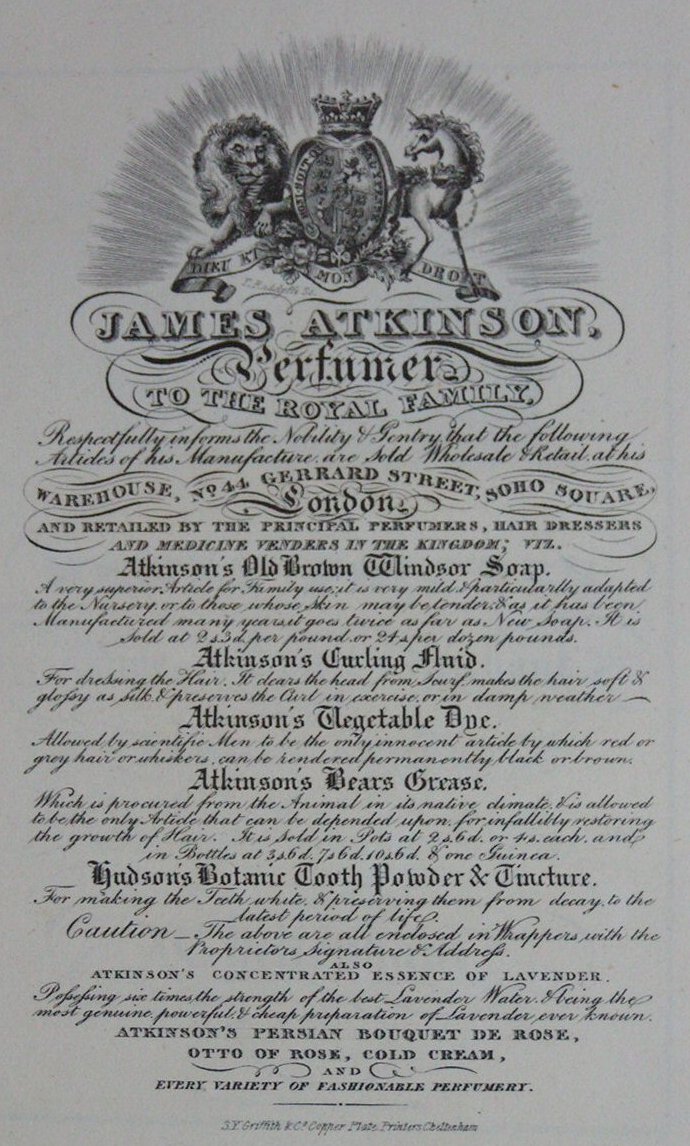 HONI SOIT QUI MAL Y PENSE
DIEU ET MON DROIT
JAMES ATKINSON,
Perfumer
TO THE ROYAL FAMILY,
Respectfully informs the Nobility & Gentry, that the following
Articles of his Manufacture are Sold Wholesale & Retail at his
WAREHOUSE, No. 44 GERRARD STREET, SOHO SQUARE,
London,
AND RETAILED BY THE PRINCIPAL PERFUMERS, HAIR DRESSERS
AND MEDICINE VENDERS IN THE KINGDOM; VIZ.
Atkinson's Old Brown Windsor Soap.
A very superior Article for Family use, it is very mild & particularly adapted
to the Nursery, or to those whose Skin may be tender, & as it has been
Manufactured many years it goes twice as far as New Soap. It is
Sold at 2s3d. per pound or 24s per dozen pounds.
Atkinson's Curling Fluid.
For dressing the Hair, It clears the head from Scurf, makes the hair soft &
glossy as silk & preserves the Curl in exercise, or in damp weather —
Atkinson's Vegetable Dye.
Allowed by scientific Men to be the only innocent article by which red or
grey hair or whiskers, can be rendered permanently black or brown.
Atkinson's Bears Grease.
Which is procured from the Animal in its native climate, & is allowed
to be the only Article that can be depended upon, for infallibly restoring
the growth of Hair. It is Sold in Pots at 2s.6d. or 4s. each, and
in Bottles at 3s6d. 7s6d. 10s6d. & one Guinea.
Hudson's Botanic Tooth Powder & Tincture.
For making the Teeth white, & preserving them from decay, to the
latest period of life.
Caution — The above are all enclosed in Wrappers, with the
Proprietors Signature & Address.
ALSO
ATKINSON'S CONCENTRATED ESSENCE OF LAVENDER.
Possessing six times the strength of the best Lavender Water, & being the
most genuine, powerful, & cheap preparation of Lavender ever known.
ATKINSON'S PERSIAN BOUQUET DE ROSE,
OTTO OF ROSE, COLD CREAM,
AND
EVERY VARIETY OF FASHIONABLE PERFUMERY.
S.Y. Griffith & Co. Copper Plate Printers Cheltenham